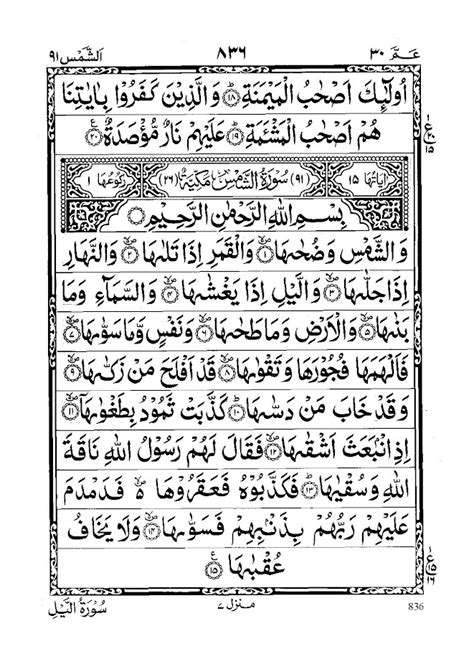 الشَّمْس ٩١ ٨٣٦ عـمّ ٣٠
اُولٰٓئِكَ اَصْحٰبُ الْمَيْمَنَةِ ۝١٨ وَالَّذِيْنَ كَفَرُوْا بِاٰيٰتِنَا
هُمْ اَصْحٰبُ الْمَشْـَٔمَةِ ۝١٩ عَلَيْهِمْ نَارٌ مُّؤْصَدَةٌ ۝٢٠
اٰيَاتُهَا ١٥ (٩١) سُوْرَةُ الشَّمْسِ مَكِّيَّةٌ (٢٦) رُكُوْعُهَا ١
بِسْمِ اللهِ الرَّحْمٰنِ الرَّحِيْمِ
وَالشَّمْسِ وَضُحٰىهَا ۝١ وَالْقَمَرِ اِذَا تَلٰىهَا ۝٢ وَالنَّهَارِ
اِذَا جَلّٰىهَا ۝٣ وَالَّيْلِ اِذَا يَغْشٰىهَا ۝٤ وَالسَّمَآءِ وَمَا
بَنٰىهَا ۝٥ وَالْاَرْضِ وَمَا طَحٰىهَا ۝٦ وَنَفْسٍ وَّمَا سَوّٰىهَا ۝٧
فَاَلْهَمَهَا فُجُوْرَهَا وَتَقْوٰىهَا ۝٨ قَدْ اَفْلَحَ مَنْ زَكّٰىهَا ۝٩
وَقَدْ خَابَ مَنْ دَسّٰىهَا ۝١٠ كَذَّبَتْ ثَمُوْدُ بِطَغْوٰىهَا ۝١١
اِذِ انْۢبَعَثَ اَشْقٰىهَا ۝١٢ فَقَالَ لَهُمْ رَسُوْلُ اللهِ نَاقَةَ
اللهِ وَسُقْيٰهَا ۝١٣ فَكَذَّبُوْهُ فَعَقَرُوْهَا ۵ فَدَمْدَمَ
عَلَيْهِمْ رَبُّهُمْ بِذَنْۢبِهِمْ فَسَوّٰىهَا ۝١٤ وَلَا يَخَافُ
عُقْبٰهَا ۝١٥
سُوْرَةُ الَّيْل منزل ٧ 836